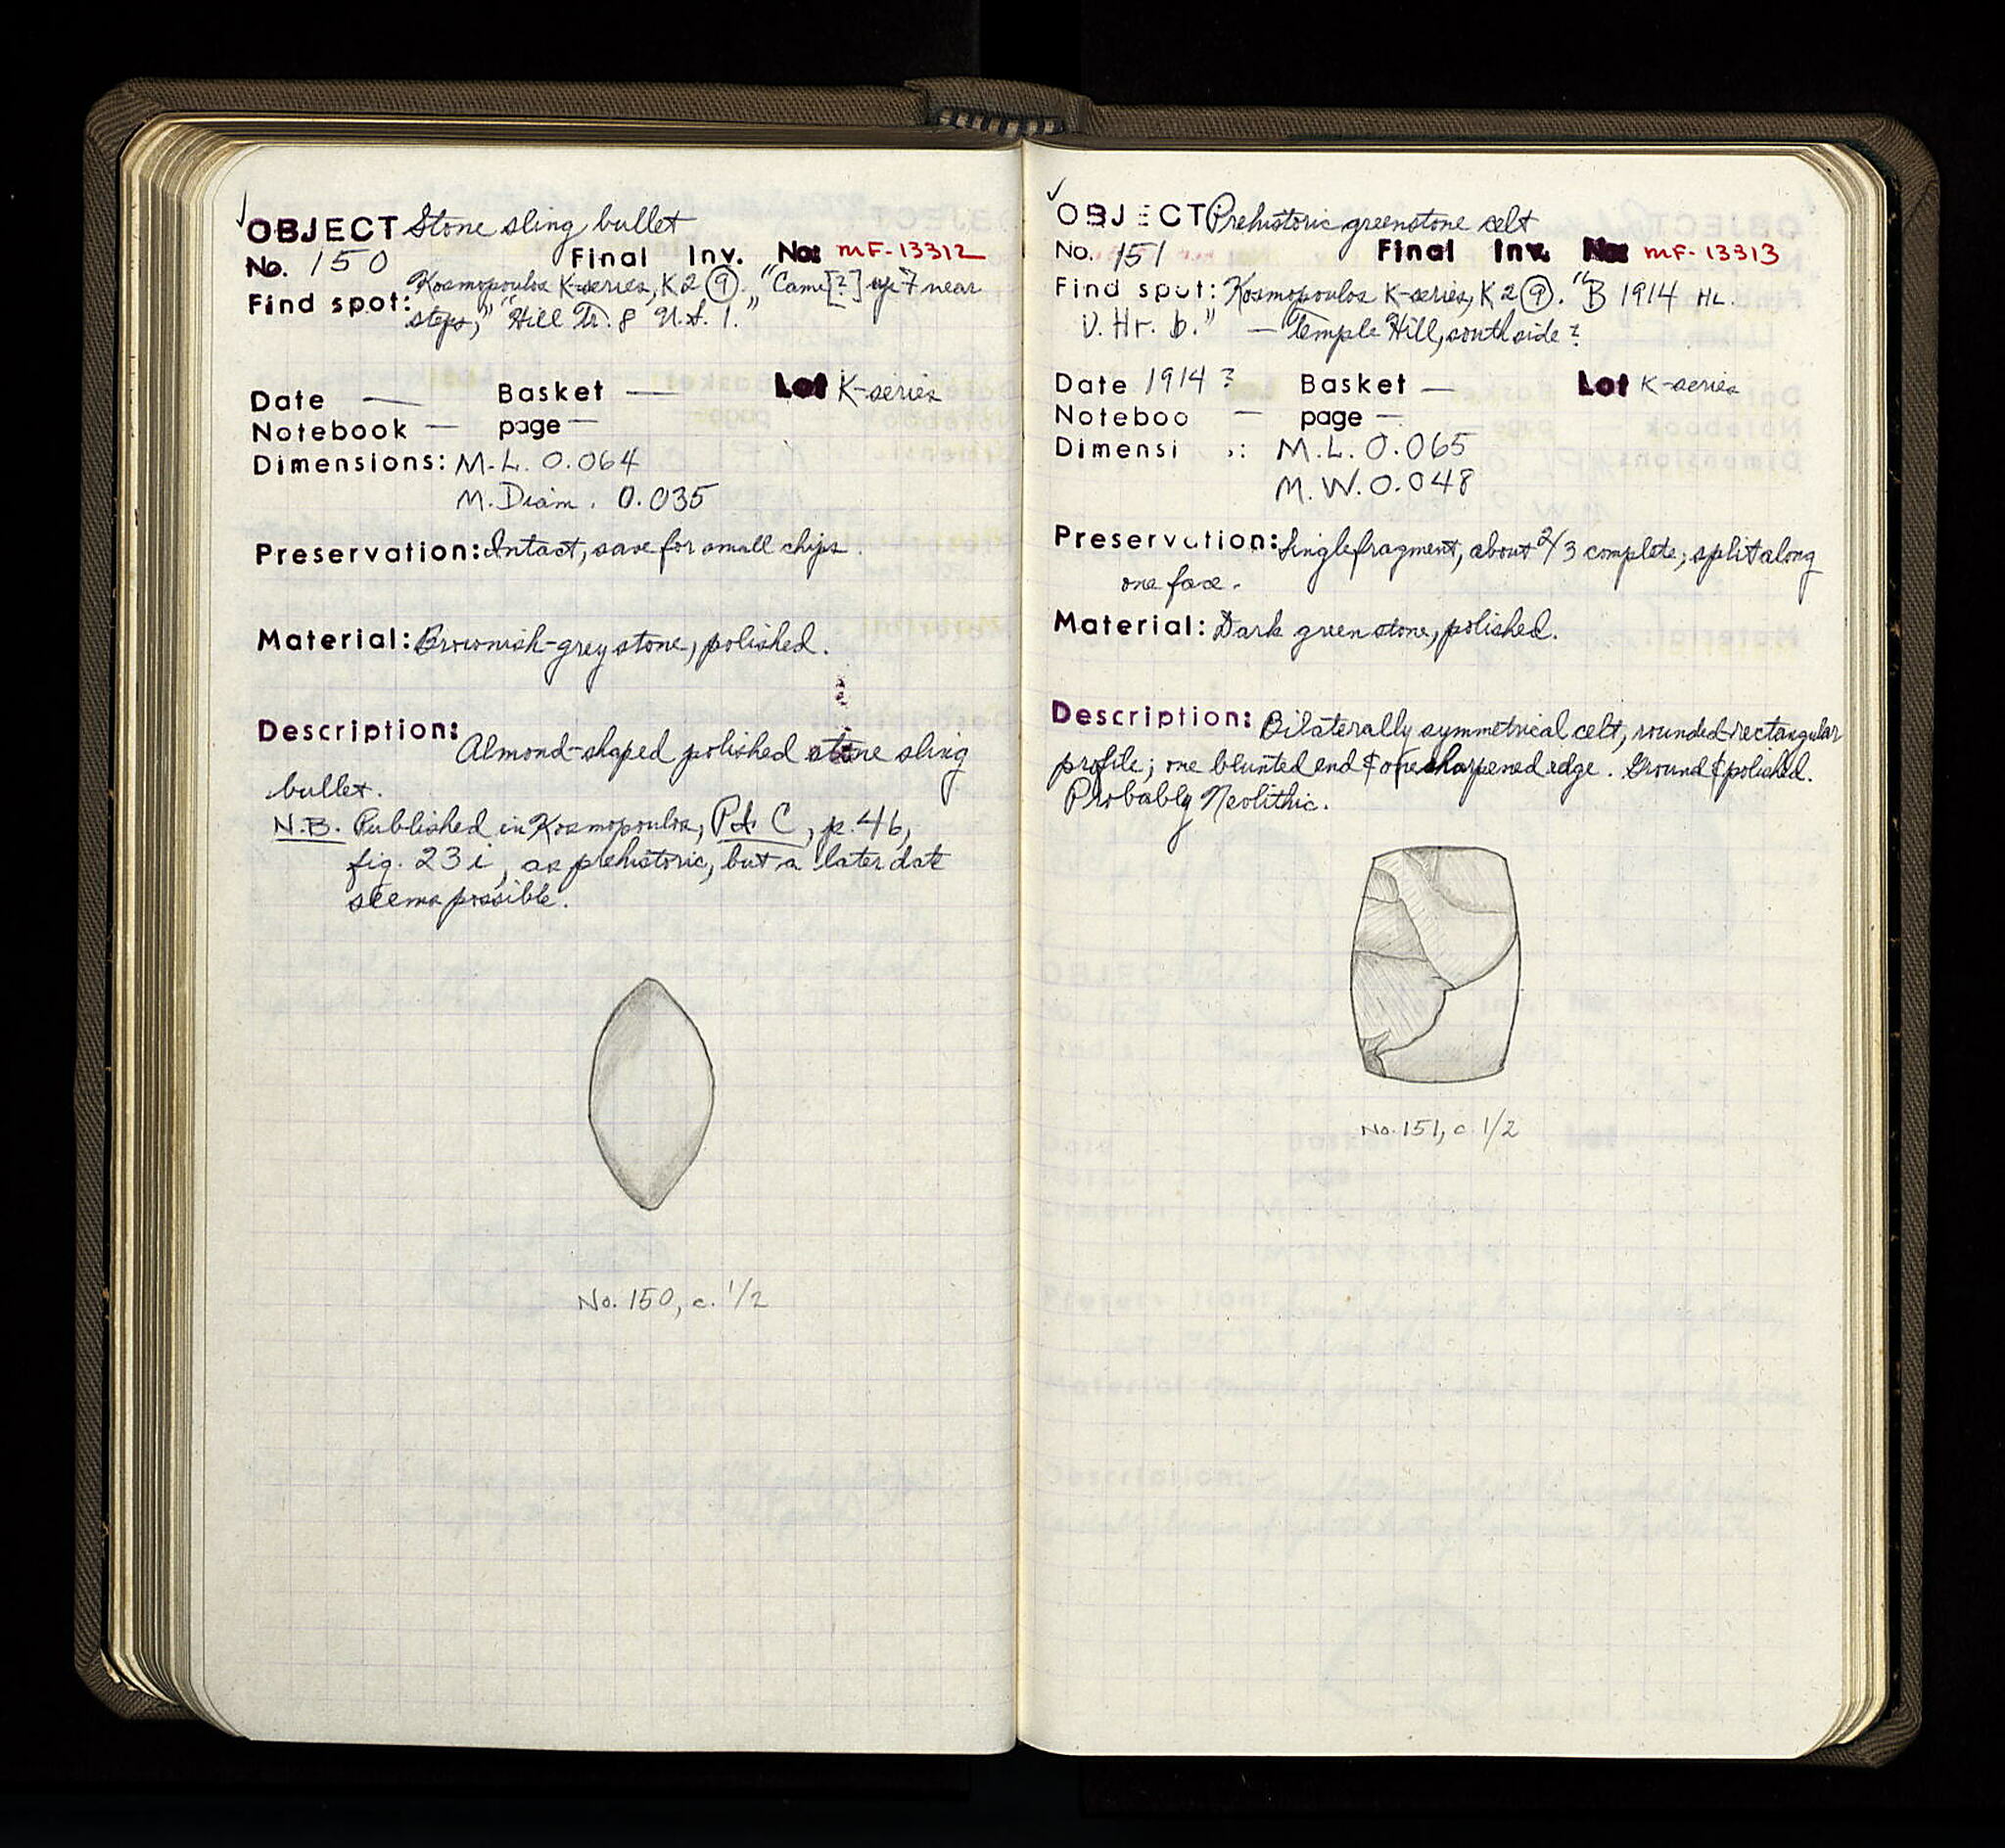 ✓ OBJECT Stone sling bullet
No. 150 Final Inv. No: MF-13312
Find spot: Kosmopoulos K-series, K2 ⑨. "Came[?] up 7 near
steps," "Hill Tr. 8 1."
Date — Basket — Lot K-series
Notebook — page —
Dimensions: M.L. 0.064
M. Diam. 0.035
Preservation: Intact, save for small chips.
Material: Brownish-grey stone, polished.
Description:
Almond-shaped polished stone sling
bullet.
N.B. Published in Kosmopoulos, P & C, p. 46,
fig. 23 i, as prehistoric, but a later date
seems possible.
No. 150, c. 1/2
✓ OBJECT Prehistoric greenstone celt
No. 151 Final Inv. No: MF-13313
Find spot: Kosmopoulos K-series, K2 ⑨. "B 1914 HL.
V. Hr. b." — Temple Hill, south side?
Date 1914? Basket — Lot K-series
Noteboo — page —
Dimensi : M.L. 0.065
M.W. 0.048
Preservation: Single fragment, about 2/3 complete; split along
one face.
Material: Dark green stone, polished.
Description: Bilaterally symmetrical celt, rounded-rectangular
profile; one blunted end & one sharpened edge. Ground & polished.
Probably Neolithic.
No. 151, c. 1/2